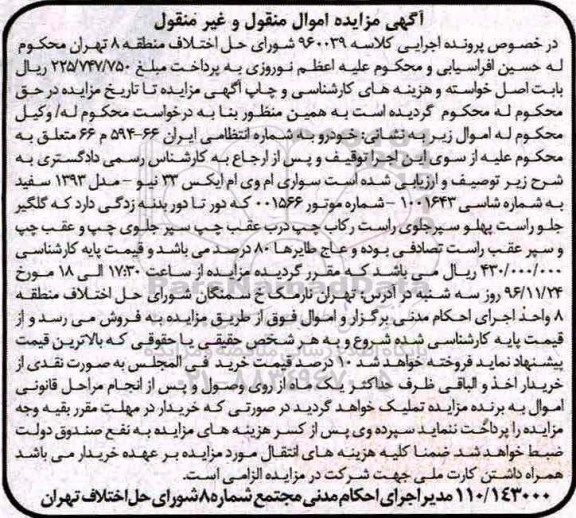 آگهی مزایده اموال منقول و غیر منقول
در خصوص پرونده اجرایی کلاسه ۹۶۰۰۳۹ شورای حل اختلاف منطقه ۸ تهران محکوم
له حسین افراسیابی و محکوم علیه اعظم نوروزی به پرداخت مبلغ ۲۲۵/۷۴۷/۷۵۰ ریال
بابت اصل خواسته و هزینه های کارشناسی و چاپ آگهی مزایده تا تاریخ مزایده در حق
محکوم له محکوم گردیده است به همین منظور بنا به درخواست محکوم له/ وکیل
محکوم له اموال زیر به نشانی: خودرو به شماره انتظامی ایران ۶۶-۵۹۴ م ۶۶ متعلق به
محکوم علیه از سوی این اجرا توقیف و پس از ارجاع به کارشناس رسمی دادگستری به
شرح زیر توصیف و ارزیابی شده است سواری ام وی ام ایکس ۳۳ نیو - مدل ۱۳۹۳ سفید
به شماره شاسی ۱۰۰۱۶۴۳ - شماره موتور ۰۰۱۵۶۶ که دور تا دور بدنه زدگی دارد که گلگیر
جلو راست پهلو سپر جلوی راست رکاب چپ درب عقب چپ سپر جلوی چپ و عقب چپ
و سپر عقب راست تصادفی بوده و عاج طایرها ۸۰ درصد می باشد و قیمت پایه کارشناسی
۴۳۰/۰۰۰/۰۰۰ ریال می باشد که مقرر گردیده مزایده از ساعت ۱۷:۳۰ الی ۱۸ مورخ
۹۶/۱۱/۲۴ روز سه شنبه در آدرس: تهران نارمک خ سمنگان شورای حل اختلاف منطقه
۸ واحد اجرای احکام مدنی برگزار و اموال فوق از طریق مزایده به فروش می رسد و از
قیمت پایه کارشناسی شده شروع و به هر شخص حقیقی یا حقوقی که بالاترین قیمت
پیشنهاد نماید فروخته خواهد شد ۱۰ درصد قیمت خرید فی المجلس به صورت نقدی از
خریدار اخذ و الباقی ظرف حداکثر یک ماه از روی وصول و پس از انجام مراحل قانونی
اموال به برنده مزایده تملیک خواهد گردید در صورتی که خریدار در مهلت مقرر بقیه وجه
مزایده را پرداخت ننماید سپرده وی پس از کسر هزینه های مزایده به نفع صندوق دولت
ضبط خواهد شد ضمنا کلیه هزینه های انتقال مورد مزایده بر عهده خریدار می باشد
همراه داشتن کارت ملی جهت شرکت در مزایده الزامی است.
۱۱۰/۱۴۳۰۰۰ مدیر اجرای احکام مدنی مجتمع شماره ۸ شورای حل اختلاف تهران